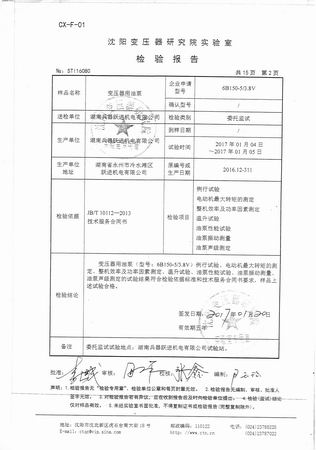 CX-F-01
沈阳变压器研究院实验室
检验报告
No: ST11608G
共15页 第2页
样品名称 变压器用油泵 企业申请型号 6B150-5/3.8V
确认型号 /
送检单位 湖南兵器跃进机电有限公司 检验类别 委托监试
到样日期 /
生产单位 湖南兵器跃进机电有限公司 试验时间 2017年01月04日
~2017年01月05日
生产单位地址 湖南省永州市冷水滩区
跃进机电有限公司 原编号或生产日期 2016.12-311
检验依据 JB/T 10112—2013
技术服务合同书 检验项目
例行试验
电动机最大转矩的测定
整机效率及功率因素测定
温升试验
油泵性能试验
油泵振动测量
油泵声级测定
检验结论
变压器用油泵(型号:6B150-5/3.8V)例行试验、电动机最大转矩的测
定、整机效率及功率因素测定、温升试验、油泵性能试验、油泵振动测量、
油泵声级测定的试验结果符合检验依据标准和技术服务合同书要求,样品上
述试验合格。
签发日期:2017年01月20日
有效期五年
备注 委托监试试验地点:湖南兵器跃进机电有限公司试验站。
批准: 审核: 校核: 编制:
声明:1.检验报告无“检验专用章”、检验单位公章和骑页封章无效。2.检验报告无编制、审核、批准人
签字无效。3.对检验报告若有异议,应在收到报告后及时向检验单位提出。4.检验(监试)结论
仅对样品有效。5.未经实验室书面批准,不得复制证书或检验报告(完整复制除外)。
邮政编码:110122